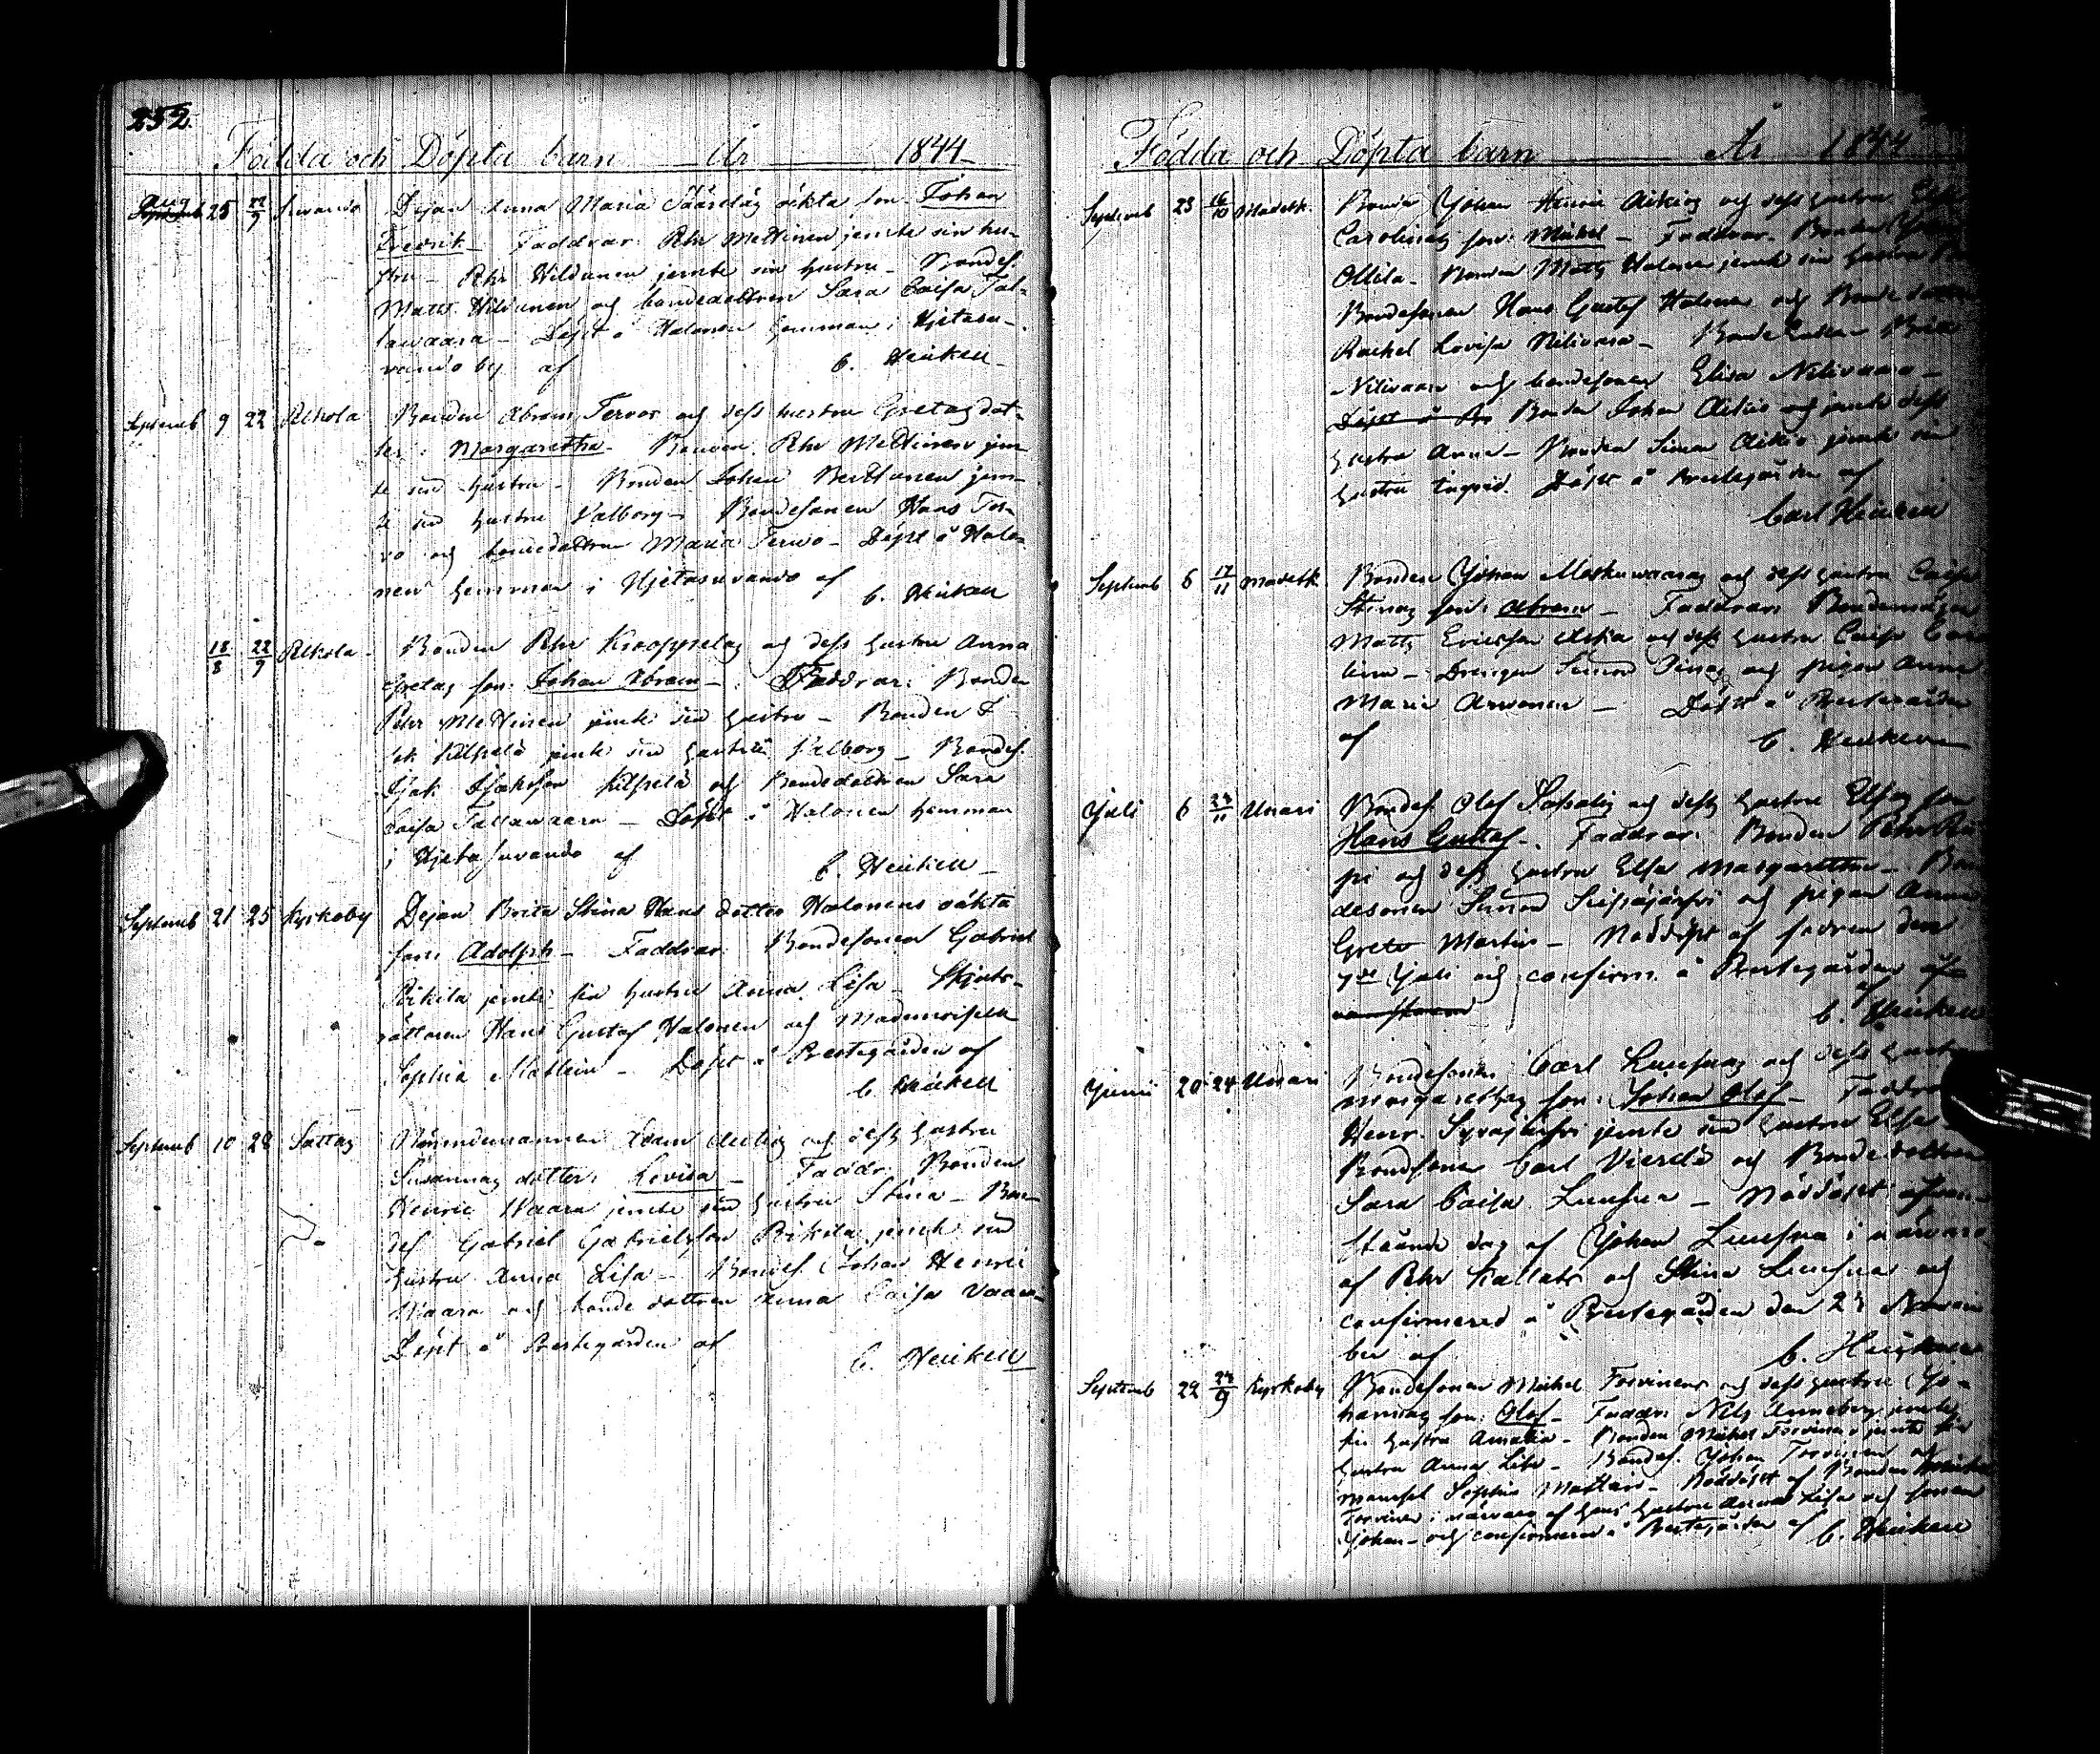 252.
Födda och Döpta barn År 1844
Aug 25 22/9 Suvando Pijan Anna Maria Säärelas oäkta son Johan
Fredrik - Faddrar: Pehr Mettinen jemte sin hu-
stru - Pehr Hildunen jemte sin hustru - Bondes.
Matts Hildunen och bondedottren Sara Caisa Tal-
lawaara - Döpt å Halonen hemman i Hjetasu-
vando by af C. Heikell
Septemb 9 22 Pelkola Bonden Abram Tervos och dess hustru Gretas dot-
ter: Margaretha. Bonden Pehr Mettinen jem-
te sin hustru - Bonden Johan Berttunen jem-
te sin hustru Valborg - Bondesonen Hans Ter-
vo och bondedottren Maria Tervo - Döpt å Halo-
nen hemman i Hjetasuvando af C. Heikell
18/8 22/9 Pelkola Bonden Pehr Knoppelas och dess hustru Anna
Gretas son: Johan Abram - Faddrar: Bonden
Pehr Mettinen jemte sin hustru - Bonden I-
sak Kilpelä jemte sin hustru Valborg - Bondes.
Isak Isaksson Kilpelä och Bondedottren Sara
Caisa Tallawaara - Döpt å Halonen hemman
i Hjetasuvando af C. Heikell
Septemb 21 25 Kyrkoby Pijan Brita Stina Hans dotter Halonens oäkta
son: Adolph - Faddrar: Bondesonen Gabriel
Rikila jemte sin hustru Anna Lisa - Skjuts-
rättaren Hans Gustaf Halonen och Mademoiselle
Sophia Mattlin - Döpt å Prestegården af
C. Heikell
Septemb 10 28 Sattas Nämndemannen Adam Autis och dess hustru
Susannas dotter: Lovisa - Faddr: Bonden
Henric Waara jemte sin hustru Stina - Bon-
des. Gabriel Gabrielsson Rikila jemte sin
hustru Anna Lisa - Bondes. Johan Henric
Waara och bonde dottren Anna Caisa Vaara
Döpt å Prestegården af C. Heikell
Födda och Döpta barn År 1844
Septemb 23 16/10 Madetk. Bonden Johan Henric Aikios och dess hustru
Carolinas son: Michel - Faddrar. Bonden
Ollila - Bonden Matts Halonen jemte sin hustru
Bondesonen Hans Gustaf Halonen och Bondedottren
Rachel Lovisa Nilivaara - Bondedottren Brita
Nilivaara och bondesonen Elias Nilivaara -
Bonden Johan Aikio och jemte dess
hustru Anna - Bonden Simon Aikio jemte sin
hustru Ingrid. Döpt å Prestegården af
Carl Heikell
Septemb 6 17/11 Madetk. Bonden Johan Moskuwaaras och dess hustru Caisa
Stinas son: Abram - Faddrar: Bondemågen
Matts Ericsson Aska och dess hustru Caisa Caro
lina - Drengen Simon och pigan Anna
Maria Arwonen - Döpt å Prestegården
af C. Heikell
Juli 6 24/11 Unari Bondes. Olof och dess hustru Elsas son
Hans Gustaf - Faddrar: Bonden Pehr
pi och dess hustru Elsa Margaretha - Bon
desonen Simon Sieppijärfvi och pigan Anna
Greta Martin - Nöddöpt af fadren den
7de Juli och confirm. å Prestegården af
C. Heikell
Junii 20 24 Unari Bondesonen Carl Luusuas och dess hustru
Margarethas son: Johan Olof - Faddrar
Henr. Syväjärfvi jemte sin hustru Elsa
Bondsonen Carl Vierelä och Bondedottren
Sara Caisa Luusua - Nöddöpt ofvan-
stående dag af Johan Luusua i närvaro
af Pehr Kallatz och Stina Luusua och
confirmered å Prestegården den 24 Novem
ber af C. Heikell
Septemb 22 24/9 Kyrkoby Bondesonen Michel Torvinens och dess hustru Jo-
hannas son: Olof - Faddr: Nils Anneberg jemte
sin hustru Amalia - Bonden Michel Torvinen jemte sin
hustru Anna Lisa - Bondes. Johan Torvinen och
mamsell Sophia Mattlin - Nöddöpt af Bonden Michel
Torvinen i närvaro af hans hustru Anna Lisa och sonen
Johan - och confirmered å Prestegården af C. Heikell